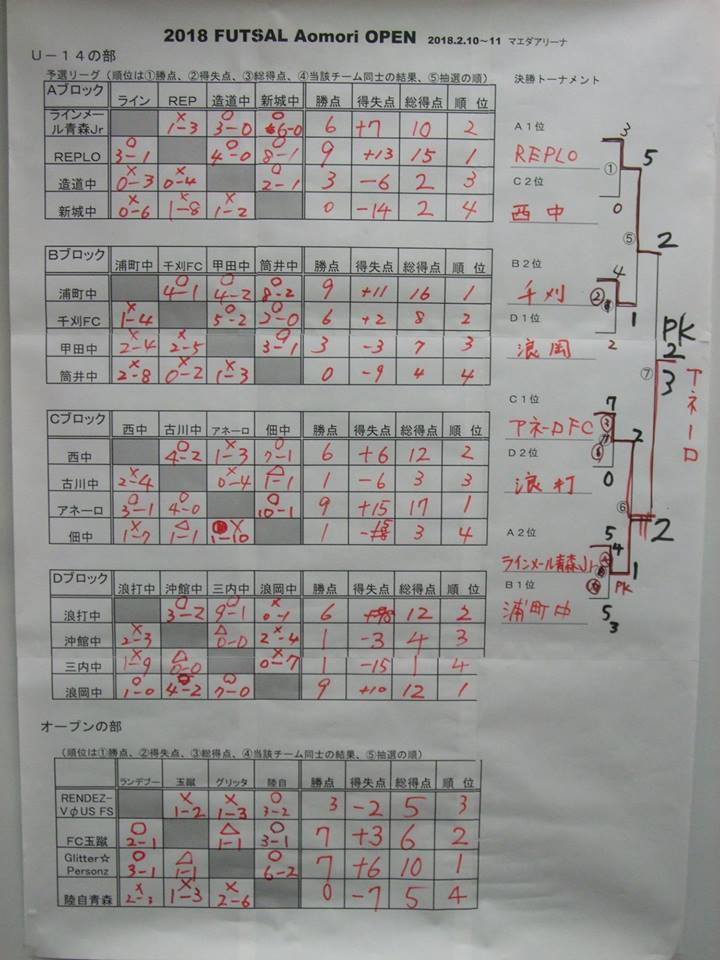 2018 FUTSAL Aomori OPEN 2018.2.10～11 マエダアリーナ
U－14の部
予選リーグ（順位は①勝点、②得失点、③総得点、④当該チーム同士の結果、⑤抽選の順） 決勝トーナメント
Aブロック ライン REP 造道中 新城中 勝点 得失点 総得点 順 位
ラインメール青森Jr × 1－3 ○ 3－0 ○ 6－0 6 +7 10 2
REPLO ○ 3－1 ○ 4－0 ○ 8－1 9 +13 15 1
造道中 × 0－3 × 0－4 ○ 2－1 3 －6 2 3
新城中 × 0－6 × 1－8 × 1－2 0 －14 2 4
Bブロック 浦町中 千刈FC 甲田中 筒井中 勝点 得失点 総得点 順 位
浦町中 ○ 4－1 ○ 4－2 ○ 8－2 9 +11 16 1
千刈FC × 1－4 ○ 5－2 ○ 2－0 6 +2 8 2
甲田中 × 2－4 × 2－5 ○ 3－1 3 －3 7 3
筒井中 × 2－8 × 0－2 × 1－3 0 －9 4 4
Cブロック 西中 古川中 アネーロ 佃中 勝点 得失点 総得点 順 位
西中 ○ 4－2 × 1－3 ○ 7－1 6 +6 12 2
古川中 × 2－4 × 0－4 △ 1－1 1 －6 3 3
アネーロ ○ 3－1 ○ 4－0 ○ 10－1 9 +15 17 1
佃中 × 1－7 △ 1－1 × 1－10 1 －15 3 4
Dブロック 浪打中 沖館中 三内中 浪岡中 勝点 得失点 総得点 順 位
浪打中 ○ 3－2 ○ 9－1 × 0－1 6 12 2
沖館中 × 2－3 △ 0－0 × 2－4 1 －3 4 3
三内中 × 1－9 △ 0－0 × 0－7 1 －15 1 4
浪岡中 ○ 1－0 ○ 4－2 ○ 7－0 9 +10 12 1
オープンの部
（順位は①勝点、②得失点、③総得点、④当該チーム同士の結果、⑤抽選の順）
ランデブー 玉蹴 グリッタ 陸自 勝点 得失点 総得点 順 位
RENDEZ-VφUS FS × 1－2 × 1－3 ○ 3－2 3 －2 5 3
FC玉蹴 ○ 2－1 △ 1－1 ○ 3－1 7 +3 6 2
Glitter☆Personz ○ 3－1 △ 1－1 ○ 6－2 7 +6 10 1
陸自青森 × 2－3 × 1－3 × 2－6 0 －7 5 4
A1位 3
REPLO ① 5
C2位 0
西中
⑤ 2
B2位 4
千刈 ② 1
D1位 2
浪岡
PK
2
⑦ 3
アネーロ
C1位 7
アネーロFC ③ 2
D2位 0
浪打
⑥ 2
A2位 5 4
ラインメール青森Jr 1
B1位 PK
浦町中 5 3